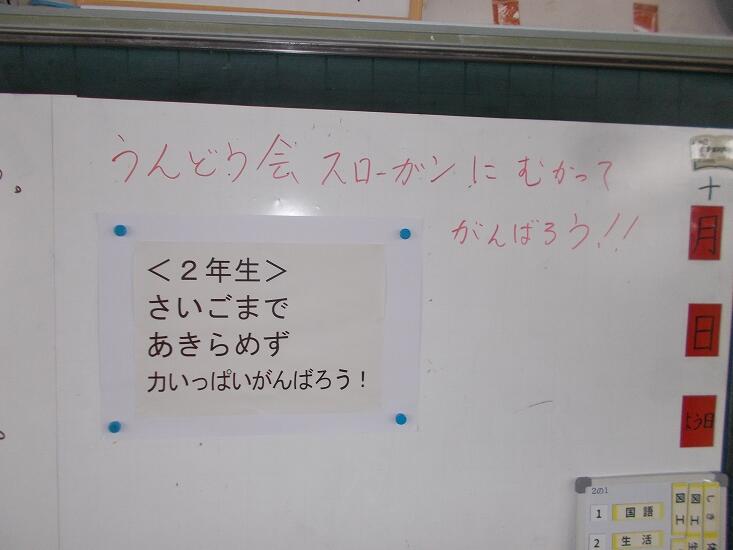 うんどう会 スローガン にむかって
がんばろう!!
＜２年生＞
さいごまで
あきらめず
力いっぱいがんばろう！
十
月
日
よう日
2の1
1 国語
2 生活
図工
図工